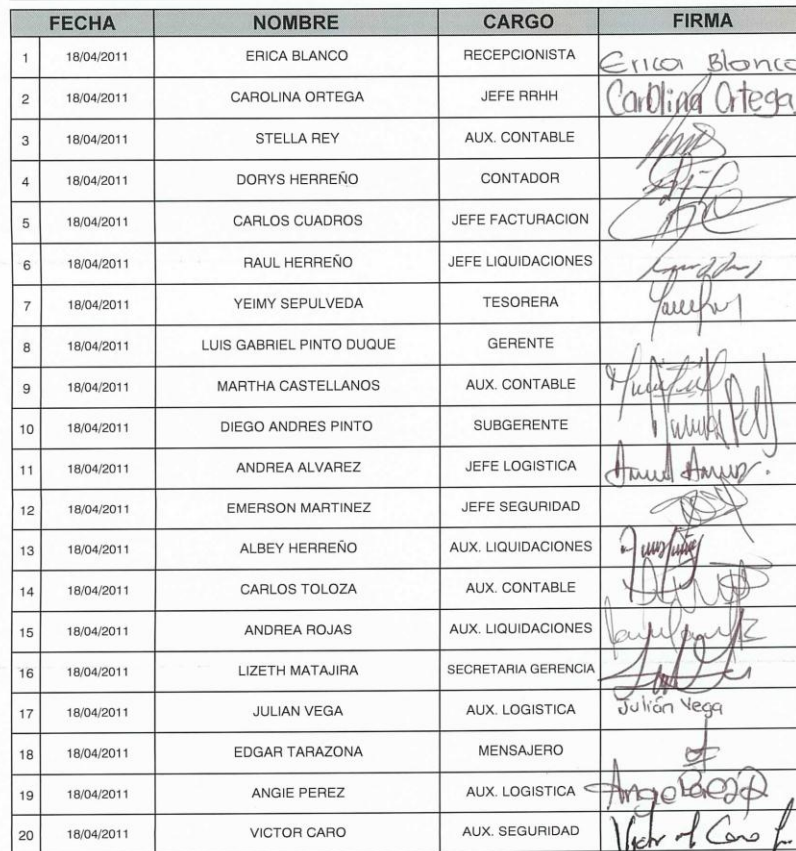 FECHA NOMBRE CARGO FIRMA
1 18/04/2011 ERICA BLANCO RECEPCIONISTA Erica Blanco
2 18/04/2011 CAROLINA ORTEGA JEFE RRHH Carolina Ortega
3 18/04/2011 STELLA REY AUX. CONTABLE
4 18/04/2011 DORYS HERREÑO CONTADOR
5 18/04/2011 CARLOS CUADROS JEFE FACTURACION
6 18/04/2011 RAUL HERREÑO JEFE LIQUIDACIONES
7 18/04/2011 YEIMY SEPULVEDA TESORERA
8 18/04/2011 LUIS GABRIEL PINTO DUQUE GERENTE
9 18/04/2011 MARTHA CASTELLANOS AUX. CONTABLE
10 18/04/2011 DIEGO ANDRES PINTO SUBGERENTE
11 18/04/2011 ANDREA ALVAREZ JEFE LOGISTICA
12 18/04/2011 EMERSON MARTINEZ JEFE SEGURIDAD
13 18/04/2011 ALBEY HERREÑO AUX. LIQUIDACIONES
14 18/04/2011 CARLOS TOLOZA AUX. CONTABLE
15 18/04/2011 ANDREA ROJAS AUX. LIQUIDACIONES
16 18/04/2011 LIZETH MATAJIRA SECRETARIA GERENCIA
17 18/04/2011 JULIAN VEGA AUX. LOGISTICA Julián Vega
18 18/04/2011 EDGAR TARAZONA MENSAJERO
19 18/04/2011 ANGIE PEREZ AUX. LOGISTICA
20 18/04/2011 VICTOR CARO AUX. SEGURIDAD